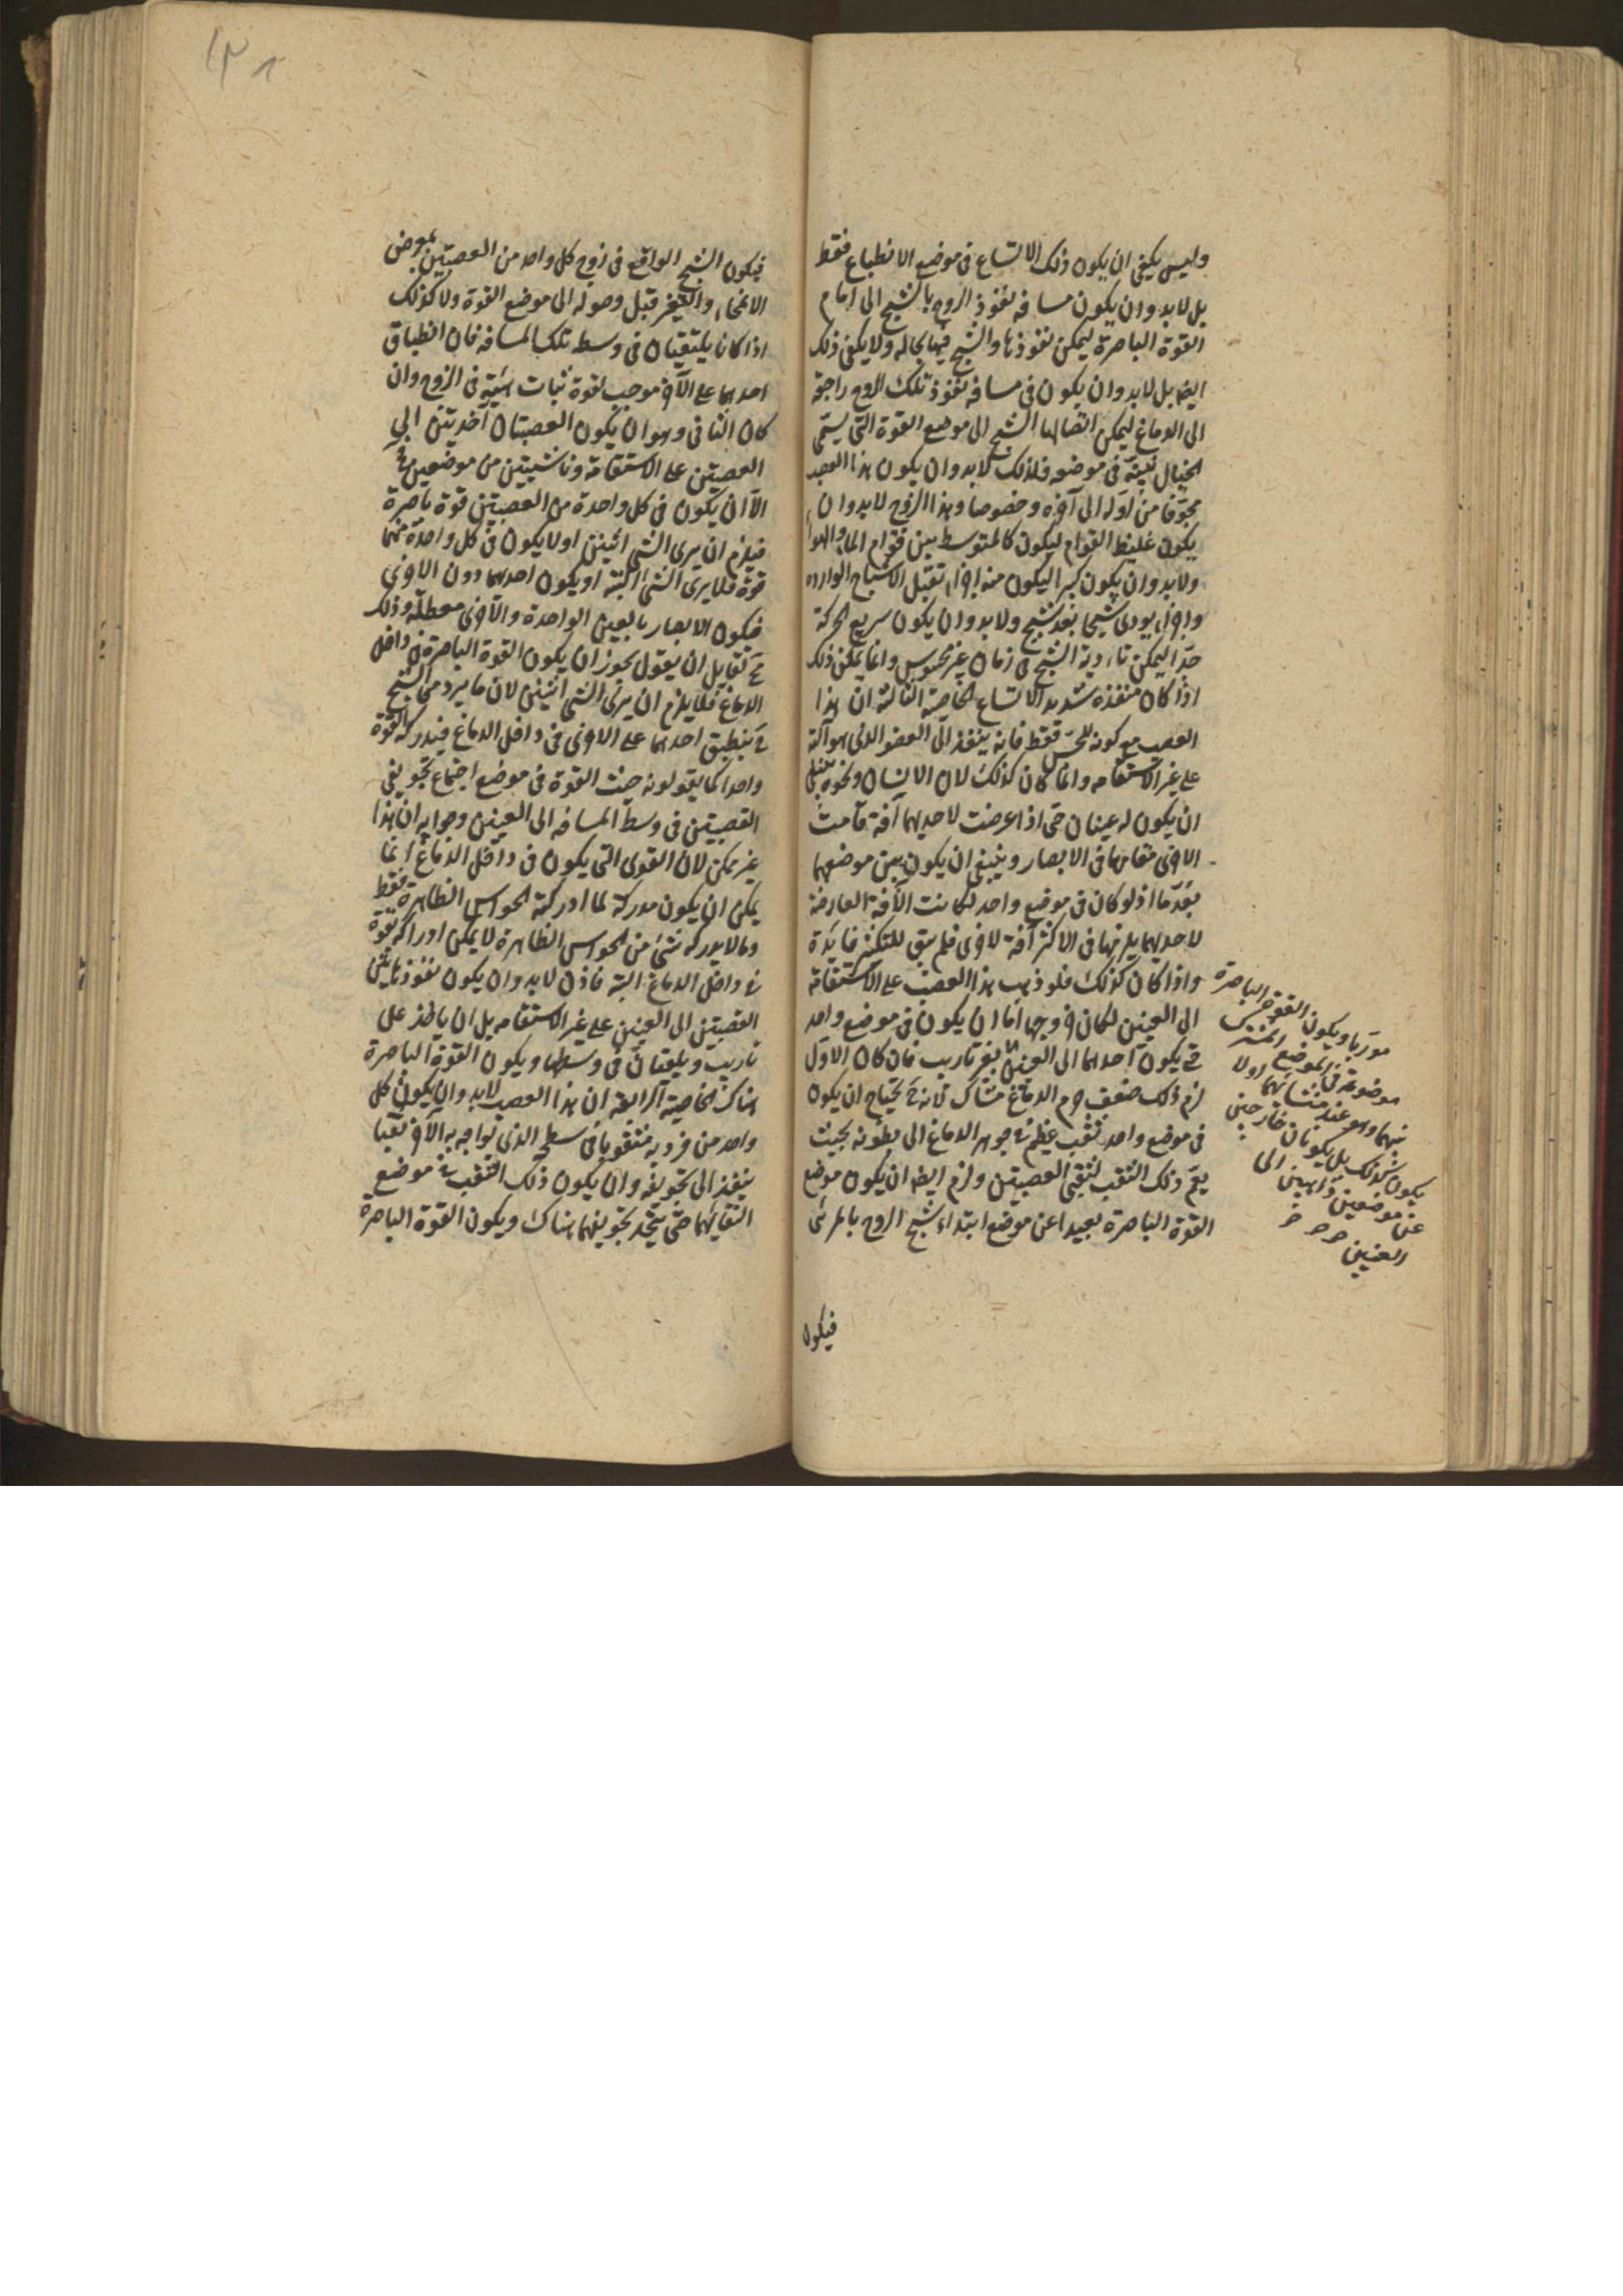 وليس يكفي ان يكون ذلك الاتساع في موضع الانطباع فقط
بل لابد وان يكون مسافه نفوذ الروح بالشبح الى امام
القوة الباصرة ليمكن نفوذها والشبح فيها بحاله ولا يكفي ذلك
ايضا بل لابد وان يكون في مسافه نفوذ تلك الروح راجعة
الى الدماغ ليمكن اتصالها الشبح الى موضع القوة التي يسمى
الخيال في موضعه فلذلك لابد وان يكون هذا العصب
مجوفا من اوله الى آخره وخصوصا وهذا الروح لابد وان
يكون غليظ القوام ليكون كالمتوسط بين قوام الماء والهواء
ولابد وان يكون كثيرا ليكون منه اجزاء تقبل الاشباح الوارده
واجزاء يودى شبحا بعد شبح ولابد وان يكون سريع الحركة
جدا ليمكن تادية الشبح في زمان غير محسوس وانما يمكن ذلك
اذا كان منفذه شديد الاتساع الخاصية الثالثة ان هذا
العصب مع كونه للحس فقط فانه ينفذ الى العضو الذي هو آلته
على غير الاستقامه وانما كان كذلك لان الانسان ونحوه
ان يكون له عينان حتى اذا عرضت لاحديهما آفة قامت
الاخرى مقامها في الابصار وينبغي ان يكون بين موضعهما
بعد ما اذ لو كان في موضع واحد لكانت الآفة العارضة
لاحديهما يلزمها في الاكثر آفة الاخرى فلم يبق للتكثر فايدة
واذا كان كذلك فلو ذهب هذا العصب على الاستقامة
الى العينين لكان خروجها اما ان يكون في موضع واحد
حتى يكون احدهما الى العينين بغير تاريب فان كان الاول
لزم ذلك ضعف جرم الدماغ هناك لانه ح يحتاج ان يكون
في موضع واحد ثقب عظيم في جوهر الدماغ الى بطونه بحيث
يعم ذلك الثقب لثقبي العصبتين ولزم ايضا ان يكون موضع
القوة الباصرة بعيدا عن موضع ابتداء شبح الروح بالمرئي
موربا ويكون القوة الباصرة
موضوعة في الموضع المشترك
بينهما وهو عند منشائهما اولا
يكون كذلك بل يكونان خارجين
عن موضعين ذاهبين الى
العينين
فيكون
فيكون الشبح الواقع في روح كل واحد من العصبتين بمعرض
الانمحاء والتغير قبل وصوله الى موضع القوة ولا كذلك
اذا كانا يلتقيان في وسط تلك المسافه فان انطباق
احدهما على الآخر موجب لقوة ثبات في الروح وان
كان الثاني وهو ان يكون العصبتان آخذتين الى
العصبتين على الاستقامة وناشبتين من موضعين ح
الا ان يكون في كل واحدة من العصبتين قوة باصرة
فيلزم ان يرى الشي اثنين اولا يكون في كل واحدة منهما
قوة فلا يرى الشي البتة او يكون احدهما دون الاخرى
فيكون الابصار بالعين الواحدة والاخرى معطلة وذلك
ح لقايل ان يقول يجوز ان يكون القوة الباصرة في داخل
الدماغ فلا يلزم ان يرى الشي اثنين لان ما يرد من الشبح
ح ينطبق احدهما على الاخرى في داخل الدماغ فيدركه القوة
واحدا كما يقولونه حيث القوة في موضع اجتماع تجويفي
العصبتين في وسط المسافه الى العينين وجوابه ان هذا
غير ممكن لان القوى التي يكون في داخل الدماغ انما
يمكن ان يكون مدركة لما ادركته الحواس الظاهرة فقط
وما لا يدركه شئ من الحواس الظاهرة لا يمكن ادراكه لقوة
في داخل الدماغ البتة فاذن لابد وان يكون نفوذ هاتين
العصبتين الى العينين على غير الاستقامه بل ان ياخذ على
تاريب ويلتقيان في وسطهما ويكون القوة الباصرة
هناك الخاصية الرابعة ان هذا العصب لابد وان يكون كل
واحد من فرديه مثقوبا في سطحه الذي يواجه به الآخر ثقبا
ينفذ الى تجويفه وان يكون ذلك الثقب في موضع
التقائهما حتى يتحد تجويفهما هناك ويكون القوة الباصرة